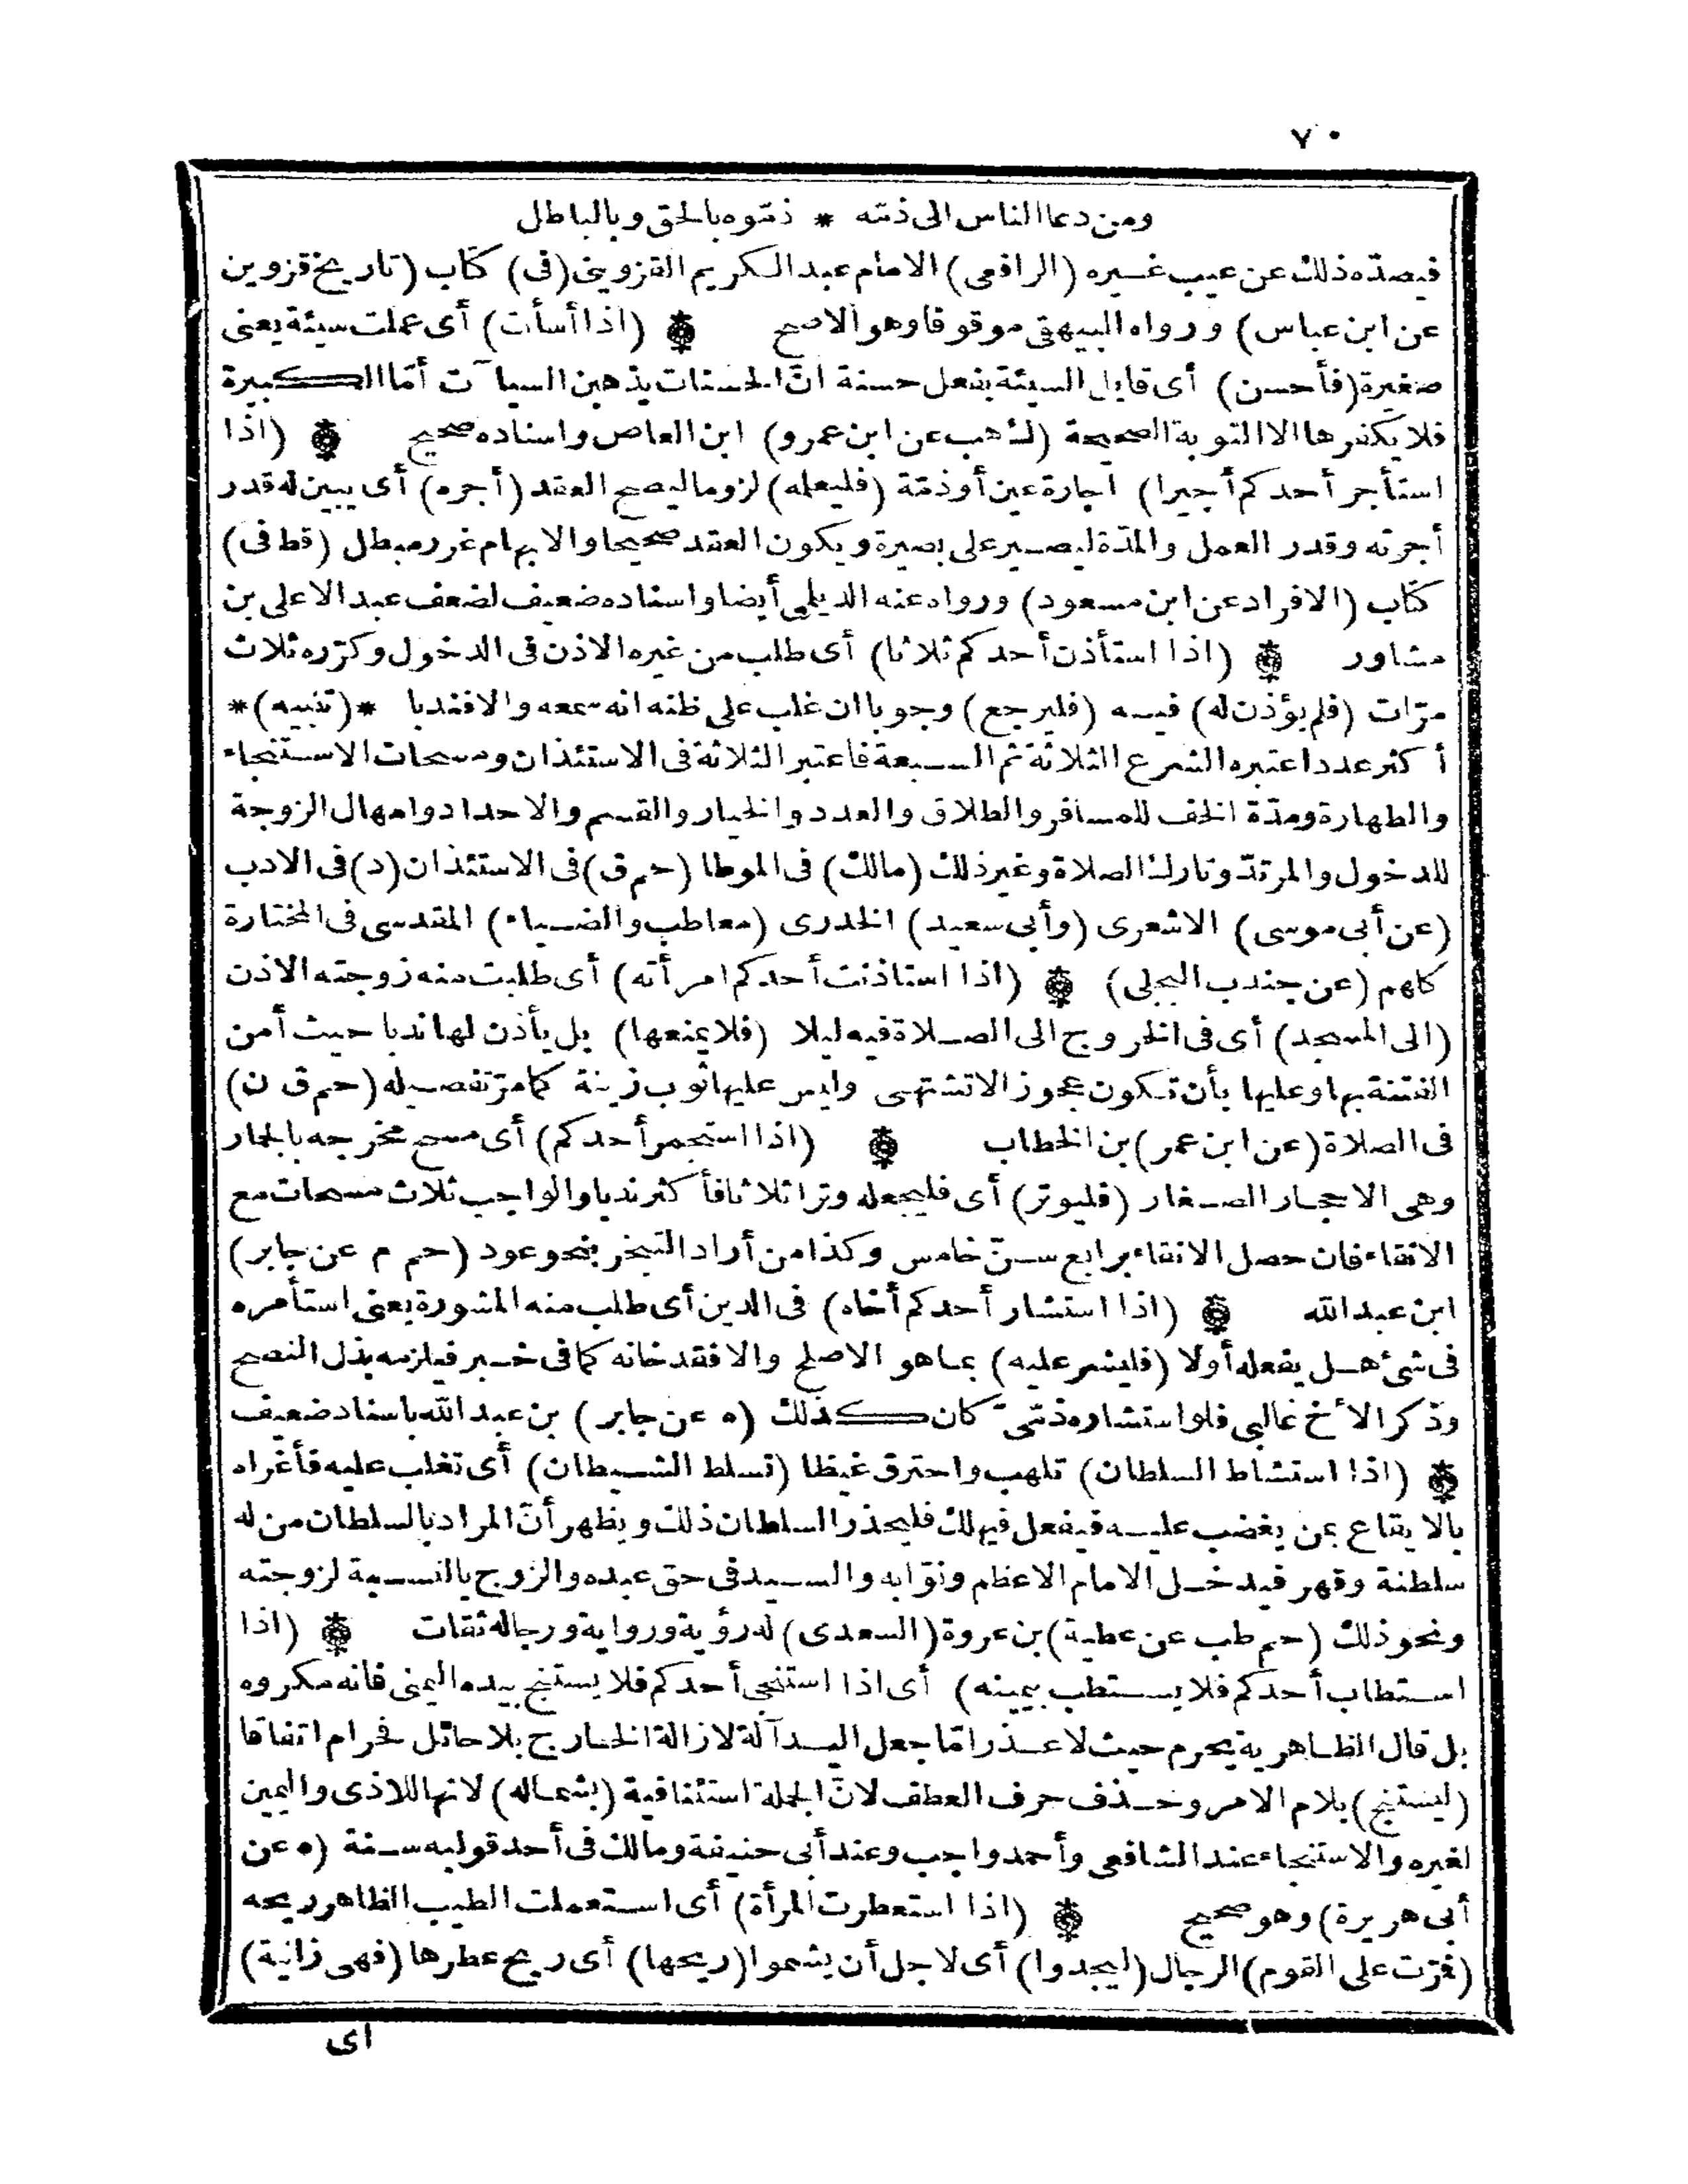 ٧٠
ومن دعا الناس الى ذمّه * ذمّوه بالحق وبالباطل
فيصدّه ذلك عن عيب غيره (الرافعى) الامام عبد الكريم القزوينى (فى) كتاب (تاريخ قزوين
عن ابن عباس) ورواه البيهقى موقوفا وهو الاصح (اذا أسأت) أى عملت سيئة يعنى
صغيرة (فأحسن) أى قابل السيئة بفعل حسنة انّ الحسنات يذهبن السيا آت أمّا الكبيرة
فلا يكفرها الا التوبة الصحيحة (ك هب عن ابن عمرو) ابن العاص واسناده صحيح (اذا
استأجر أحدكم أجيرا) اجارة عين أو ذمّة (فليعلمه) لزوما ليصح العقد (أجره) أى يبين له قدر
أجرته وقدر العمل والمدّة ليصير على بصيرة ويكون العقد صحيحا والابهام غرر مبطل (قط فى)
كتاب (الافراد عن ابن مسعود) ورواه عنه الديلمى أيضا واسناده ضعيف لضعف عبد الاعلى بن
مشاور (اذا استأذن أحدكم ثلاثا) أى طلب من غيره الاذن فى الدخول وكرّره ثلاث
مرّات (فلم يؤذن له) فيه (فليرجع) وجوبا ان غلب على ظنه انه سمعه والا فندبا *(تنبيه)*
أكثر عدد اعتبره الشرع الثلاثة ثم السبعة فاعتبر الثلاثة فى الاستئذان ومسحات الاستنجاء
والطهارة ومدّة الخف للمسافر والطلاق والعدد والخيار والقسم والاحداد وامهال الزوجة
للدخول والمرتدّ وتارك الصلاة وغير ذلك (مالك) فى الموطا (حم ق) فى الاستئذان (د) فى الادب
(عن أبى موسى) الاشعرى (وأبى سعيد) الخدرى (معا طب والضياء) المقدسى فى المختارة
كلهم (عن جندب البجلى) (اذا استاذنت أحدكم امرأته) أى طلبت منه زوجته الاذن
(الى المسجد) أى فى الخروج الى الصلاة فيه ليلا (فلا يمنعها) بل يأذن لها ندبا حيث أمن
الفتنة بها وعليها بأن تكون عجوزا لا تشتهى وليس عليها ثوب زينة كما مرّ تفصيله (حم ق ن)
فى الصلاة (عن ابن عمر) بن الخطاب (اذا استجمر أحدكم) أى مسح مخرجه بالجمار
وهى الاحجار الصغار (فليوتر) أى فليجعله وترا ثلاثا فأكثر ندبا والواجب ثلاث مسحات مع
الانقاء فان حصل الانقاء برابع سنّ خامس وكذا من أراد التبخر بنحو عود (حم م عن جابر)
ابن عبد الله (اذا استشار أحدكم أخاه) فى الدين أى طلب منه المشورة يعنى استأمره
فى شئ هل يفعله أولا (فليشر عليه) بما هو الاصلح والا فقد خانه كما فى خبر فيلزمه بذل النصح
وذكر الأخ غالبى فلو استشاره ذمّىّ كان كذلك (ه عن جابر) بن عبد الله باسناد ضعيف
(اذا استشاط السلطان) تلهب واحترق غيظا (تسلط الشيطان) أى تغلب عليه فأغراه
بالايقاع بمن يغضب عليه فيفعل فيهلك فليحذر السلطان ذلك ويظهر أنّ المراد بالسلطان من له
سلطنة وقهر فيدخل الامام الاعظم ونوّابه والسيد فى حق عبده والزوج بالنسبة لزوجته
ونحو ذلك (حم طب عن عطية) بن عروة (السعدى) له رؤية ورواية ورجاله ثقات (اذا
استطاب أحدكم فلا يستطب بيمينه) أى اذا استنجى أحدكم فلا يستنج بيده اليمنى فانه مكروه
بل قال الظاهرية يحرم حيث لا عذر امّا جعل اليد آلة لازالة الخارج بلا حائل فحرام اتفاقا
(ليستنج) بلام الامر وحذف حرف العطف لانّ الجملة استئنافية (بشماله) لانها للاذى واليمين
لغيره والاستنجاء عند الشافعى وأحمد واجب وعند أبى حنيفة ومالك فى أحد قوليه سنة (ه عن
أبى هريرة) وهو صحيح (اذا استعطرت المرأة) أى استعملت الطيب الظاهر ريحه
(فمرّت على القوم) الرجال (ليجدوا) أى لاجل أن يشموا (ريحها) أى ريح عطرها (فهى زانية)
اى